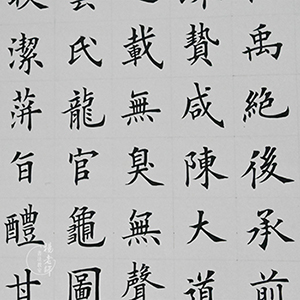 禹絕後承前
贄咸陳大道
載無臭無聲
氏龍官龜圖
潔萍旨醴甘